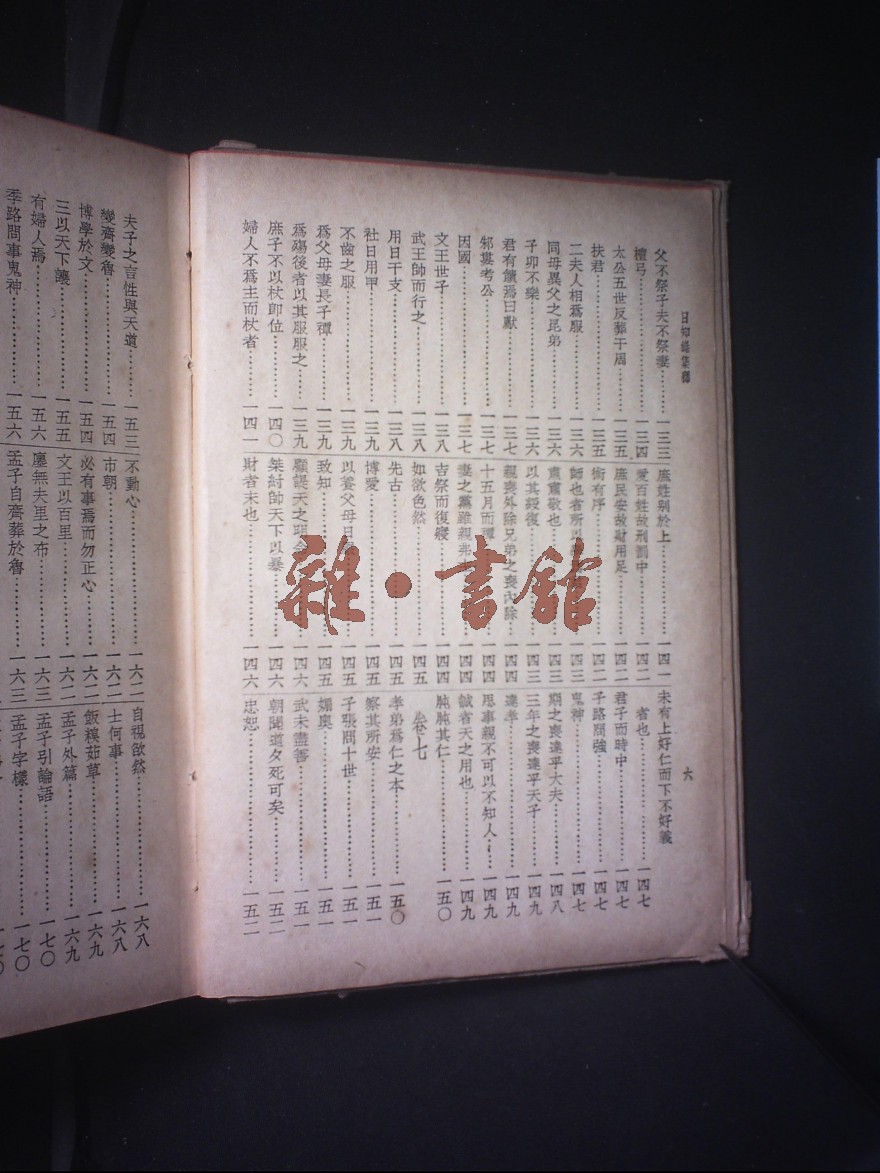 日知錄集釋
六
父不祭子夫不祭妻………一三三
檀弓………一三四
太公五世反葬于周………一三五
扶君………一三五
二夫人相為服………一三六
同母異父之昆弟………一三六
子卯不樂………一三六
君有饋焉曰獻………一三七
邾婁考公………一三七
因國………一三七
文王世子………一三八
武王帥而行之………一三八
用日干支………一三八
社日用甲………一三九
不齒之服………一三九
為父母妻長子禫………一三九
為殤後者以其服服之………一三九
庶子不以杖卽位………一四〇
婦人不為主而杖者………一四一
庶姓別於上………一四一
愛百姓故刑罰中………一四二
庶民安故財用足………一四二
術有序………一四二
師也者所以
肅肅敬也………一四三
以其綏復………一四三
親喪外除兄弟之喪內除………一四四
十五月而禫………一四四
妻之黨雖親弗
吉祭而復寢………一四四
如欲色然………一四五
先古………一四五
博愛………一四五
以養父母日
致知………一四五
顧諟天之明命………一四六
桀紂帥天下以暴………一四六
財者末也………一四六
未有上好仁而下不好義
者也………一四七
君子而時中………一四七
子路問強………一四七
鬼神………一四七
期之喪達乎大夫………一四八
三年之喪達乎天子………一四九
達孝………一四九
思事親不可以不知人………一四九
誠者天之用也………一四九
肫肫其仁………一五〇
卷七
孝弟為仁之本………一五〇
察其所安………一五一
子張問十世………一五一
媚奧………一五一
武未盡善………一五一
朝聞道夕死可矣………一五二
忠恕………一五二
夫子之言性與天道………一五三
變齊變魯………一五四
博學於文………一五四
三以天下讓………一五五
有婦人焉………一五六
季路問事鬼神………一五六
不動心………一六二
市朝………一六二
必有事焉而勿正心………一六二
文王以百里………一六二
廛無夫里之布………一六三
孟子自齊葬於魯………一六三
自視欿然………一六八
士何事………一六八
飯糗茹草………一六九
孟子外篇………一六九
孟子引論語………一七〇
孟子字樣………一七〇
雜·書館